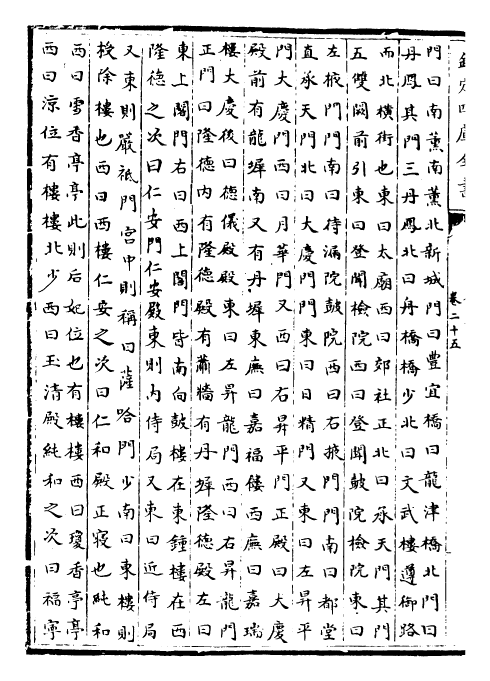 欽定四庫全書
卷二十五
門曰南薰南薰北新城門曰豐宜橋曰龍津橋北門曰
丹鳳其門三丹鳳北曰舟橋橋少北曰文武樓遵御路
而北橫街也東曰太廟西曰郊社正北曰承天門其門
五雙闕前引東曰登聞檢院西曰登聞鼓院檢院東曰
左掖門門南曰待漏院鼓院西曰右掖門門南曰都堂
直承天門北曰大慶門門東曰日精門又東曰左昇平
門大慶門西曰月華門又西曰右昇平門正殿曰大慶
殿前有龍墀南又有丹墀東廡曰嘉福樓西廡曰嘉瑞
樓大慶後曰德儀殿殿東曰左昇龍門西曰右昇龍門
正門曰隆德内有隆德殿有蕭牆有丹墀隆德殿左曰
東上閤門右曰西上閤門皆南向鼓樓在東鍾樓在西
隆德之次曰仁安門仁安殿東則内侍局又東曰近侍局
又東則嚴祗門宫中則稱曰薩哈門少南曰東樓則
授除樓也西曰西樓仁安之次曰仁和殿正寢也純和
西曰雪香亭亭此則后妃位也有樓樓西曰瓊香亭亭
西曰涼位有樓樓北少西曰玉清殿純和之次曰福寧